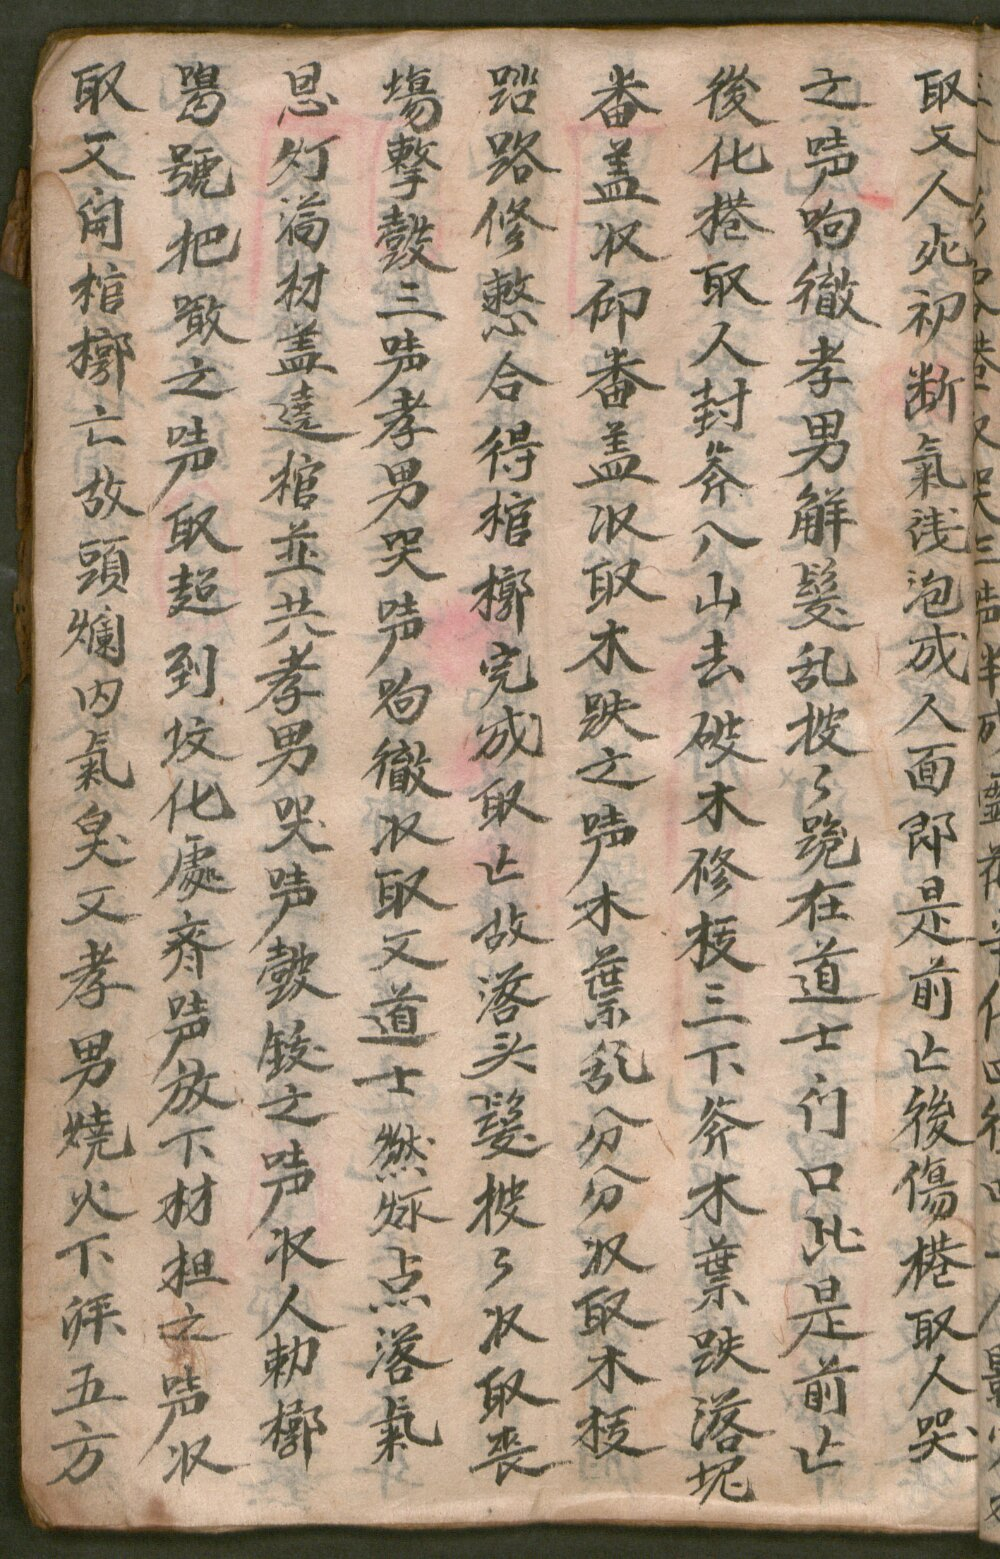 取又人死初断氣浅泡成人面即是前亡後傷棬取人哭
之唠呴徹孝男解髮乱披々跪在道士门口此是前亡
後化棬取人封斧入山去破木修枝三下斧木葉跌落塊
番盖収仰番盖収取木跌之唠木葉乱分分収取木枝
踏路修整合得棺槨完成取亡故落头髮披々収取丧
塲擊鼓三唠孝男哭唠呴徹収取又道士燃灯点落氣
恩灯滿材盖達棺並共孝男哭唠鼓鈸之唠収人勅槨
喝號把蹾之唠取超到坟化處齊唠放下材担之唠収
取又開棺槨亡故頭爛内氣臭又孝男燒火下五方